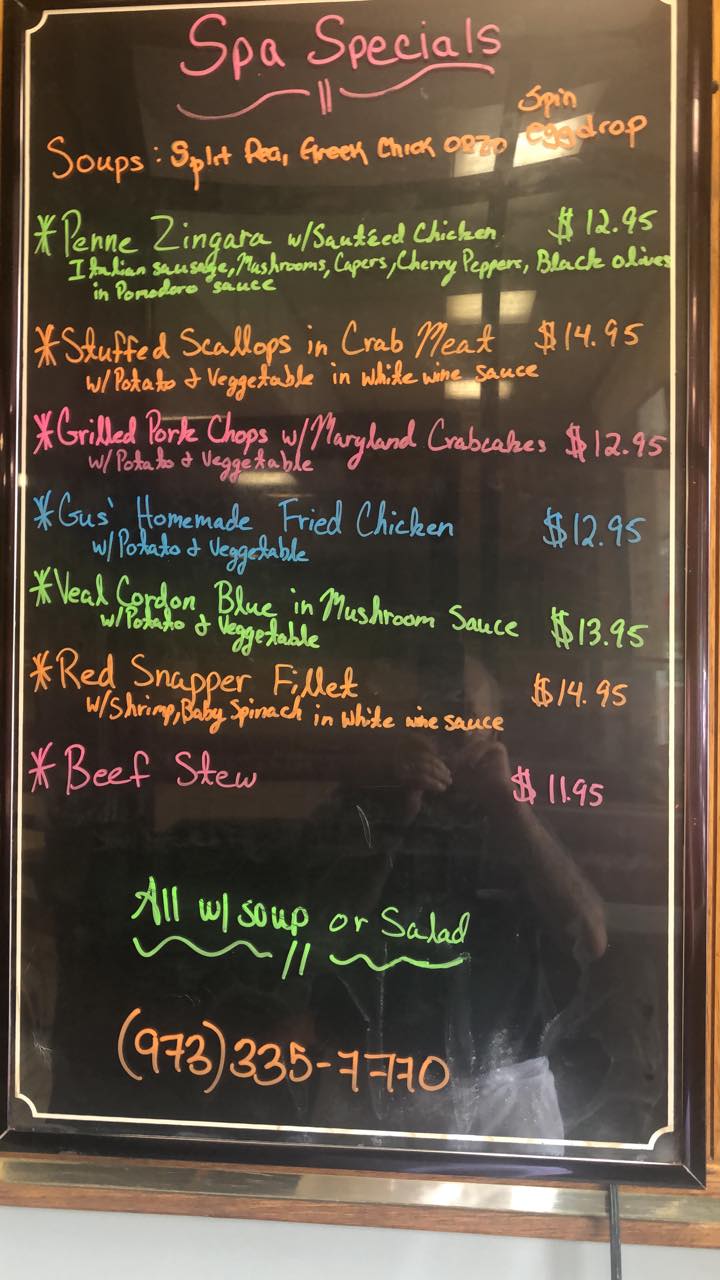 Spa Specials
Spin
Soups: Split Pea, Greek Chick orzo eggdrop
*Penne Zingara w/Sautéed Chicken $12.95
Italian sausage, Mushrooms, Capers, Cherry Peppers, Black olives
in Pomodoro sauce
*Stuffed Scallops in Crab Meat $14.95
w/Potato & Veggetable in white wine sauce
*Grilled Pork Chops w/Maryland Crabcakes $12.95
w/Potato & Veggetable
*Gus' Homemade Fried Chicken $12.95
w/Potato & Veggetable
*Veal Cordon Blue in Mushroom Sauce $13.95
w/Potato & Veggetable
*Red Snapper Fillet $14.95
w/Shrimp, Baby Spinach in white wine sauce
*Beef Stew $11.95
All w/soup or Salad
(973)335-7770